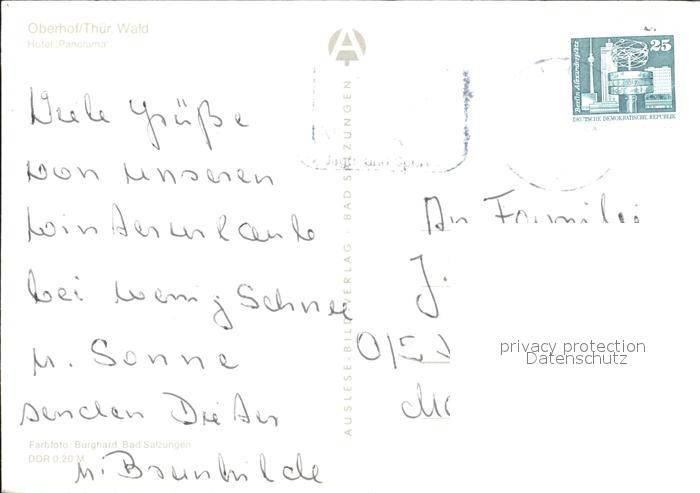 Oberhof/Thür. Wald
Hotel „Panorama"
Viele Grüße
von unseren
Winterurlaub
bei wenig Schnee
u. Sonne
senden Dieter
u. Brunhilde
Farbfoto: Burghard, Bad Salzungen
DDR 0,20 M
AUSLESE-BILD-VERLAG · BAD SALZUNGEN
Berlin, Alexanderplatz
25
DEUTSCHE DEMOKRATISCHE REPUBLIK
An Familie
J.
privacy protection
Datenschutz